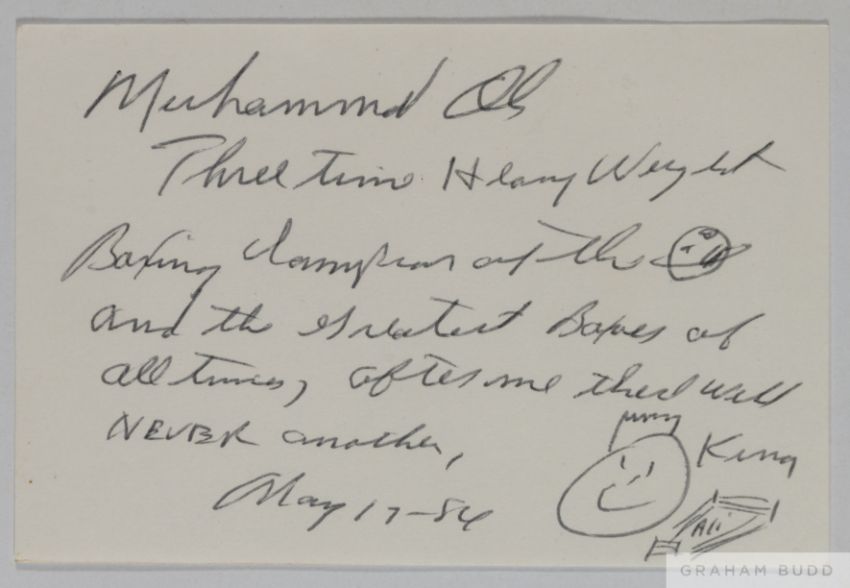 Muhammad Ali
Three time Heavy Weight
Boxing Champion of the
and the greatest Boxer of
all times, after me there will
NEVER another,
King
May 17-84
Ali
GRAHAM BUDD